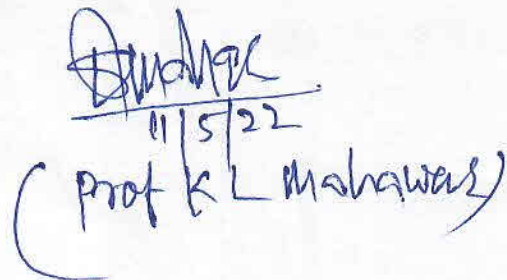 11/5/22
(Prof K L Mahawar)